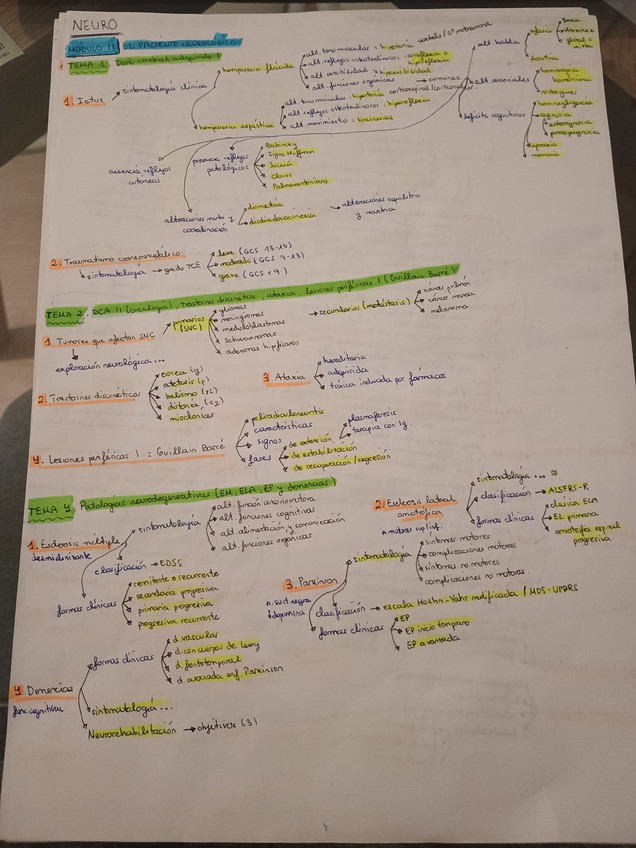 NEURO
MÓDULO II: EL PACIENTE NEUROLÓGICO
TEMA 1. Daño cerebral adquirido I
1. Ictus → sintomatología clínica
hemiparesia flácida
alt. tono muscular: hipotonía
alt. reflejos osteotendinosos: arreflexia o hiporreflexia
alt. sensibilidad → hiposensibilidad
alt. funciones orgánicas
hemiparesia espástica
alt. tono muscular: hipertonía
alt. reflejos osteotendinosos: hiperreflexia
alt. movimiento: sincinesias
alt. habla
afasia
Broca
Wernicke
global o mixta
disartria
alt. sensoriales
hemianopsia homónima
nistagmus
déficits cognitivos
heminegligencia
agnosia
asterognosia
prosopagnosia
apraxia
memoria
ausencia reflejos cutáneos
presencia reflejos patológicos
Babinski
Signo Hoffman
Succión
Clonus
Palmomentoniano
alteraciones mvto y coordinación
dismetría
disdiadococinesia
→ alteraciones equilibrio y marcha
2. Traumatismo craneoencefálico
↳ sintomatología → grado TCE
leve (GCS 13-15)
moderado (GCS 9-13)
grave (GCS <9)
TEMA 2. DCA II (oncología), trastorno discinético, ataxia y lesiones periféricas I (Guillain Barré)
1. Tumores que afectan SNC
primarios (SNC)
gliomas
meningiomas
meduloblastomas
schwannomas
adenomas hipofisarios
→ secundarios (metástasis)
cáncer pulmón
cáncer mama
melanoma
exploración neurológica...
2. Trastornos discinéticos
corea (g)
atetosis (p)
balismo
distonía
mioclonías
3. Ataxia
hereditaria
adquirida
tóxica inducida por fármacos
4. Lesiones periféricas I: Guillain Barré
polirradiculoneuritis
características
signos
fases
de extensión
plasmaféresis
terapia con Ig.
de estabilización
de recuperación/regresión
TEMA 4. Patologías neurodegenerativas (EM, ELA, EP y demencias)
1. Esclerosis múltiple
desmielinizante
sintomatología
alt. función sensoriomotora
alt. funciones cognitivas
alt. alimentación y comunicación
alt. funciones orgánicas
clasificación → EDSS
formas clínicas
remitente o recurrente
secundaria progresiva
primaria progresiva
progresiva recurrente
2. Esclerosis lateral amiotrófica
sintomatología ...
clasificación → ALSFRS-R
formas clínicas
clásica ELA
EL primaria
amiotrofia espinal progresiva
3. Parkinson
n. sust. negra
↓dopamina
sintomatología
síntomas motores
complicaciones motoras
síntomas no motores
complicaciones no motoras
clasificación → escala Hoehn-Yahr modificada / MDS-UPDRS
formas clínicas
EP
EP inicio temprano
EP avanzada
4. Demencias
func. cognitivas
formas clínicas
d. vascular
d. con cuerpos de Lewy
d. frontotemporal
d. asociada enf. Parkinson
sintomatología ...
Neurorehabilitación → objetivos (3)